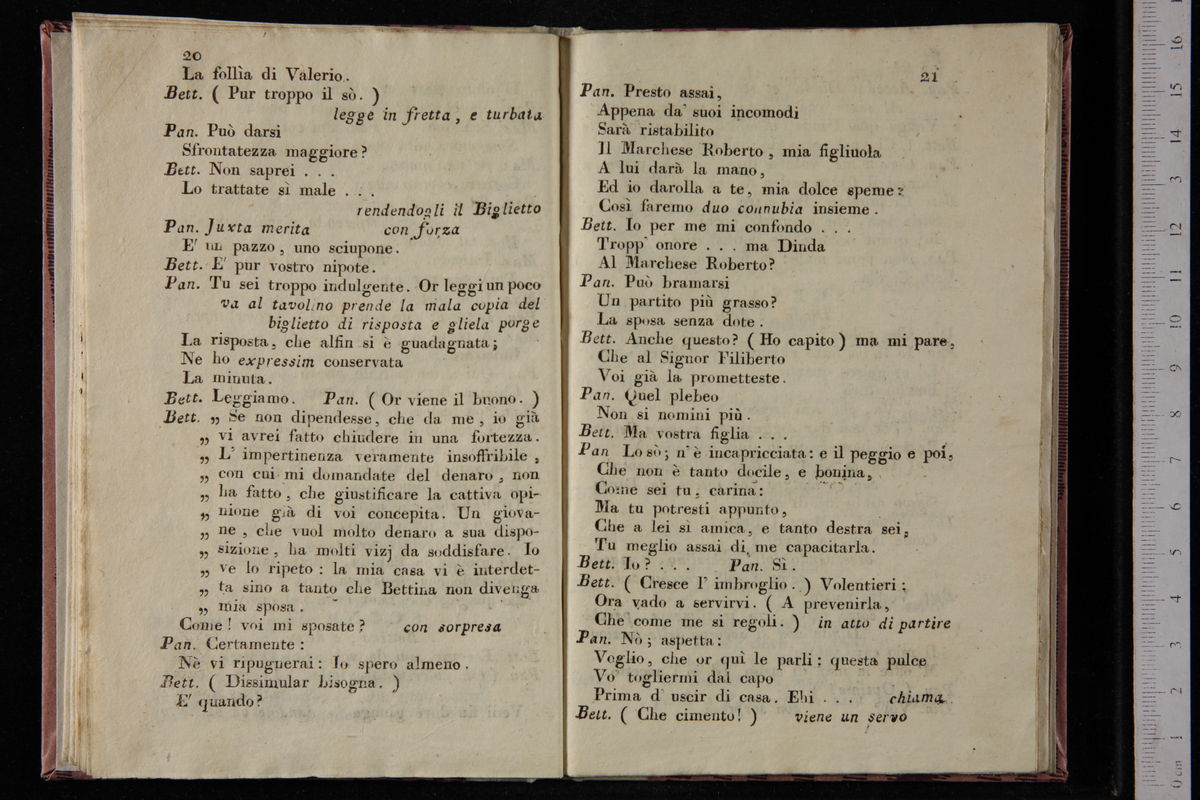 20
La follìa di Valerio.
Bett. ( Pur troppo il sò. )
legge in fretta, e turbata
Pan. Può darsi
Sfrontatezza maggiore?
Bett. Non saprei . . .
Lo trattate sì male . . .
rendendogli il Biglietto
Pan. Juxta merita con forza
E' un pazzo, uno sciupone.
Bett. E' pur vostro nipote.
Pan. Tu sei troppo indulgente. Or leggi un poco
va al tavolino prende la mala copia del
biglietto di risposta e gliela porge
La risposta, che alfin si è guadagnata;
Ne ho expressim conservata
La minuta.
Bett. Leggiamo. Pan. ( Or viene il buono. )
Bett. „ Se non dipendesse, che da me, io già
„ vi avrei fatto chiudere in una fortezza.
„ L' impertinenza veramente insoffribile,
„ con cui mi domandate del denaro, non
„ ha fatto, che giustificare la cattiva opi-
„ nione già di voi concepita. Un giova-
„ ne, che vuol molto denaro a sua dispo-
„ sizione, ha molti vizj da soddisfare. Io
„ ve lo ripeto: la mia casa vi è interdet-
„ ta sino a tanto che Bettina non divenga
„ mia sposa.
Come! voi mi sposate? con sorpresa
Pan. Certamente:
Nè vi ripugnerai: Io spero almeno.
Bett. ( Dissimular bisogna. )
E' quando?
21
Pan. Presto assai,
Appena da' suoi incomodi
Sarà ristabilito
Il Marchese Roberto, mia figliuola
A lui darà la mano,
Ed io darolla a te, mia dolce speme:
Così faremo duo connubia insieme.
Bett. Io per me mi confondo . . .
Tropp' onore . . . ma Dinda
Al Marchese Roberto?
Pan. Può bramarsi
Un partito più grasso?
La sposa senza dote.
Bett. Anche questo? ( Ho capito ) ma mi pare,
Che al Signor Filiberto
Voi già la prometteste.
Pan. Quel plebeo
Non si nomini più.
Bett. Ma vostra figlia . . .
Pan Lo sò; n'è incapricciata: e il peggio e poi,
Che non è tanto docile, e bonina,
Come sei tu, carina:
Ma tu potresti appunto,
Che a lei sì amica, e tanto destra sei,
Tu meglio assai di me capacitarla.
Bett. Io? . . . Pan. Sì.
Bett. ( Cresce l' imbroglio. ) Volentieri;
Ora vado a servirvi. ( A prevenirla,
Che come me si regoli. ) in atto di partire
Pan. Nò; aspetta:
Voglio, che or quì le parli: questa pulce
Vo' togliermi dal capo
Prima d' uscir di casa. Ehi . . . chiama.
Bett. ( Che cimento! ) viene un servo
0 cm 1 2 3 4 5 6 7 8 9 10 11 12 13 14 15 16